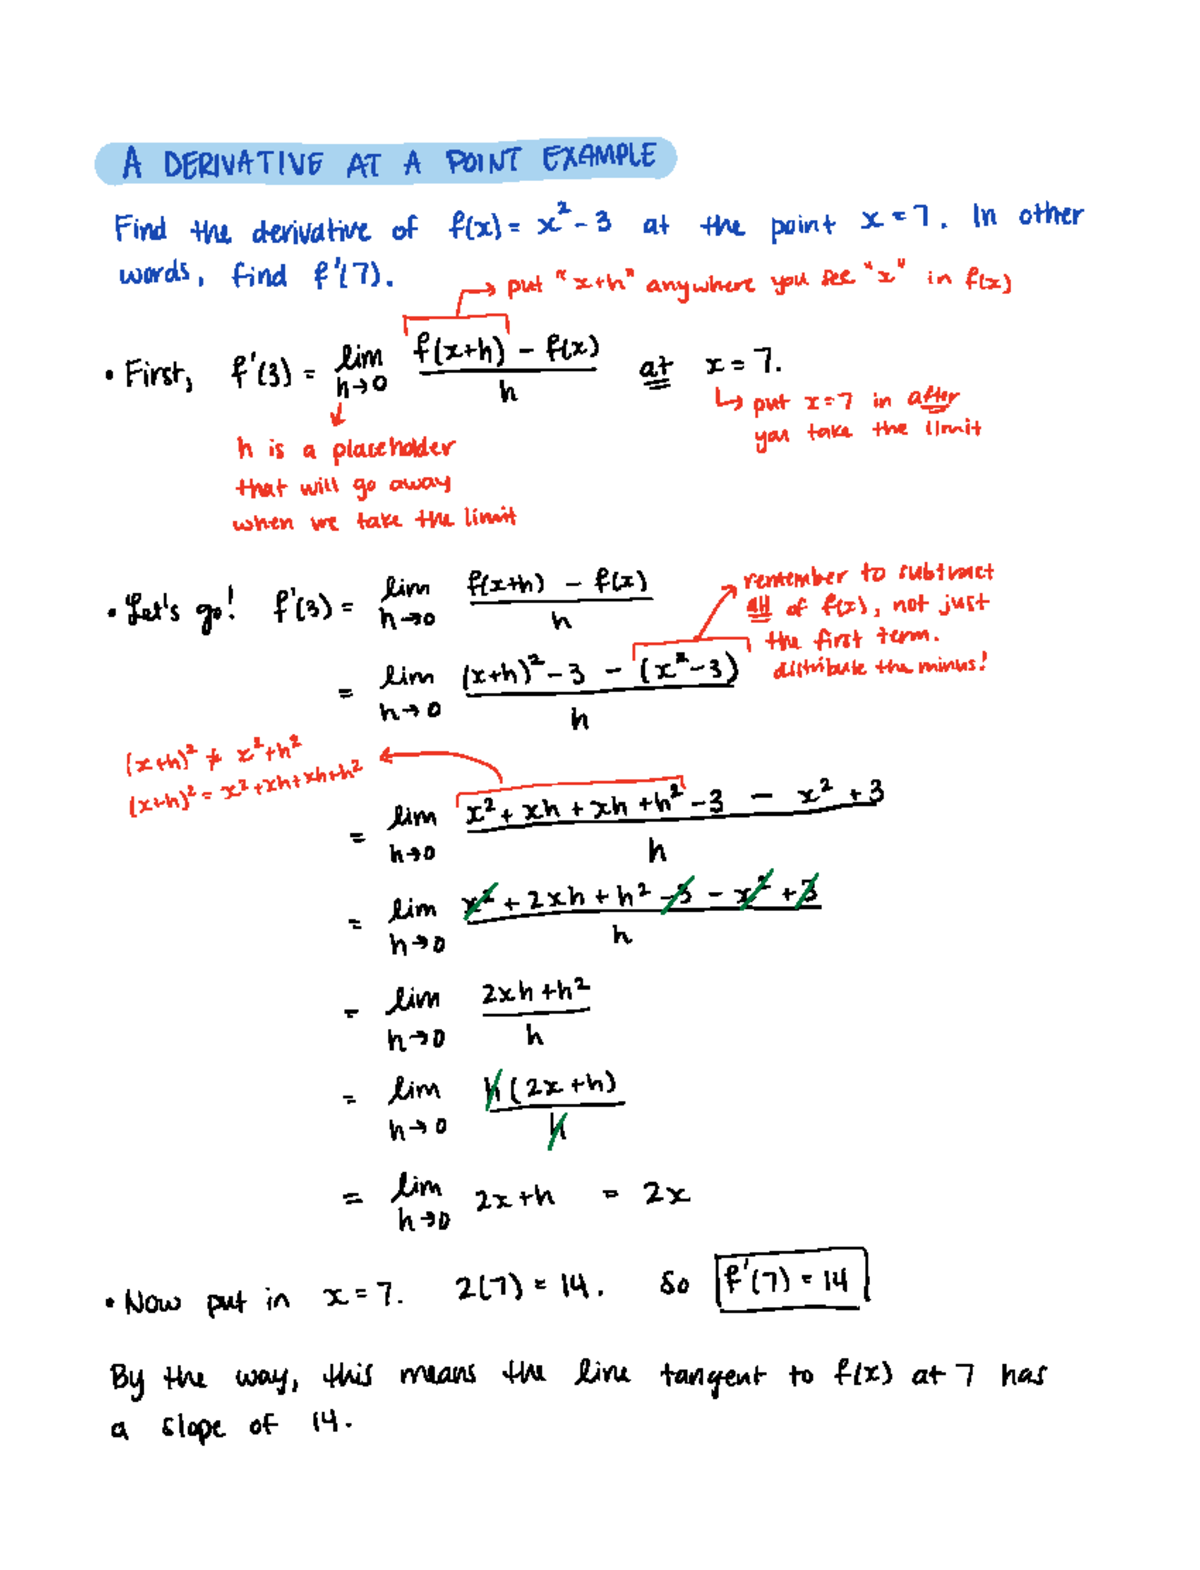 A DERIVATIVE AT A POINT EXAMPLE
Find the derivative of f(x) = x² - 3 at the point x = 7. In other
words, find f'(7).
put "x+h" anywhere you see "x" in f(x)
• First, f'(3) = lim h→0 (f(x+h) - f(x))/h at x = 7.
put x=7 in after
you take the limit
h is a placeholder
that will go away
when we take the limit
• Let's go! f'(3) = lim h→0 (f(x+h) - f(x))/h
remember to subtract
all of f(x), not just
the first term.
distribute the minus!
= lim h→0 ((x+h)² - 3 - (x² - 3))/h
(x+h)² ≠ x²+h²
(x+h)² = x²+xh+xh+h²
= lim h→0 (x² + xh + xh + h² - 3 - x² + 3)/h
= lim h→0 (x² + 2xh + h² - 3 - x² + 3)/h
= lim h→0 (2xh + h²)/h
= lim h→0 h(2x+h)/h
= lim h→0 2x+h = 2x
• Now put in x = 7. 2(7) = 14. So f'(7) = 14
By the way, this means the line tangent to f(x) at 7 has
a slope of 14.